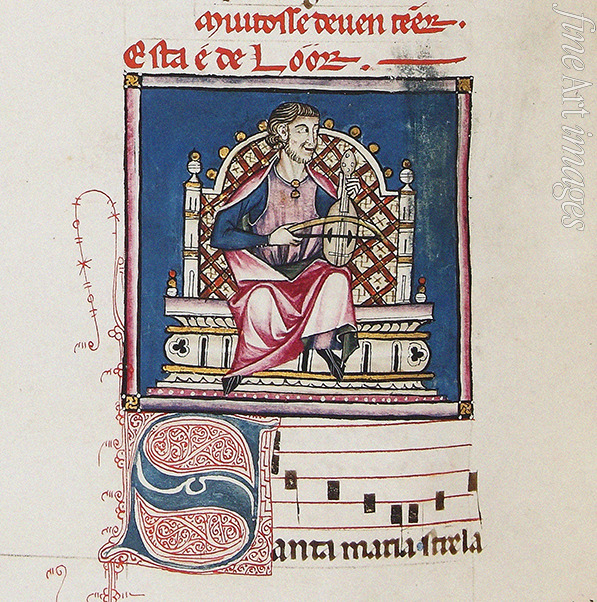 Muitosse deuen teer.
Esta é de Loor.
Santa maria strela
fine art images